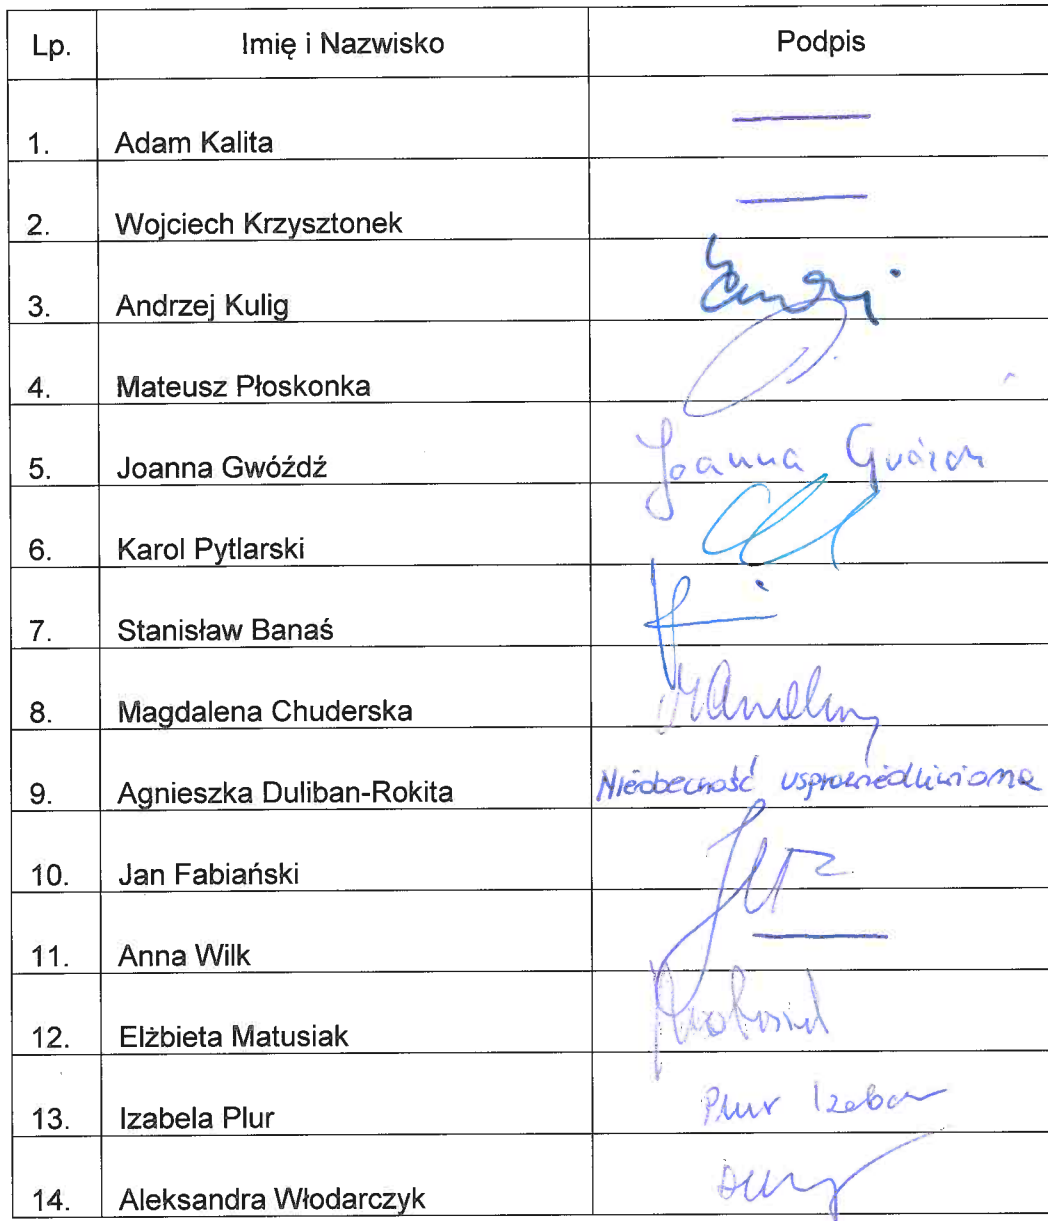 Lp. Imię i Nazwisko Podpis
1. Adam Kalita
2. Wojciech Krzysztonek
3. Andrzej Kulig
4. Mateusz Płoskonka
5. Joanna Gwóźdź Joanna Gwóźdź
6. Karol Pytlarski
7. Stanisław Banaś
8. Magdalena Chuderska
9. Agnieszka Duliban-Rokita Nieobecność usprawiedliwiona
10. Jan Fabiański
11. Anna Wilk
12. Elżbieta Matusiak
13. Izabela Plur Plur Izabela
14. Aleksandra Włodarczyk